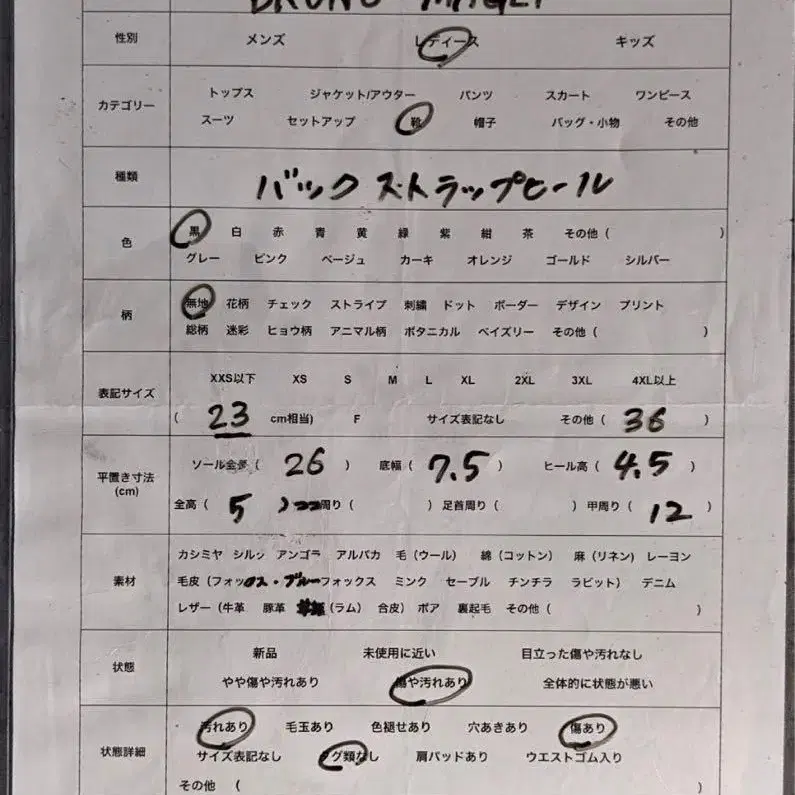 BRUNO MAGLI
性別 メンズ レディース キッズ
カテゴリー
トップス ジャケット/アウター パンツ スカート ワンピース
スーツ セットアップ 靴 帽子 バッグ・小物 その他
種類 バックストラップヒール
色
黒 白 赤 青 黄 緑 紫 紺 茶 その他 ( )
グレー ピンク ベージュ カーキ オレンジ ゴールド シルバー
柄
無地 花柄 チェック ストライプ 刺繍 ドット ボーダー デザイン プリント
総柄 迷彩 ヒョウ柄 アニマル柄 ボタニカル ペイズリー その他 ( )
表記サイズ
XXS以下 XS S M L XL 2XL 3XL 4XL以上
( 23 cm相当) F サイズ表記なし その他 ( 36 )
平置き寸法
(cm)
ソール全長 ( 26 ) 底幅 ( 7.5 ) ヒール高 ( 4.5 )
全高 ( 5 ) 周り ( ) 足首周り ( ) 甲周り ( 12 )
素材
カシミヤ シルク アンゴラ アルパカ 毛 (ウール) 綿 (コットン) 麻 (リネン) レーヨン
毛皮 (フォックス・ブルーフォックス ミンク セーブル チンチラ ラビット) デニム
レザー (牛革 豚革 (ラム) 合皮) ボア 裏起毛 その他 ( )
状態
新品 未使用に近い 目立った傷や汚れなし
やや傷や汚れあり 傷や汚れあり 全体的に状態が悪い
状態詳細
汚れあり 毛玉あり 色褪せあり 穴あきあり 傷あり
サイズ表記なし タグ類なし 肩パッドあり ウエストゴム入り
その他 ( )